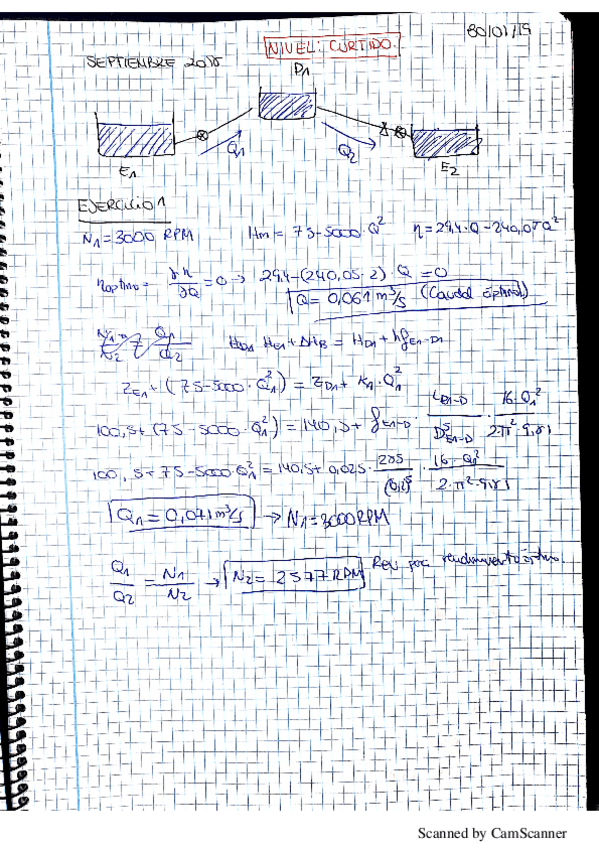 30/01/19
NIVEL: CURTIDO.
SEPTIEMBRE 2018
D1
Q1
Q2
E1
E2
EJERCICIO 1
N1 = 3000 RPM Hm = 75-5000·Q² η = 29,4·Q - 240,05Q²
ηoptimo = ∂η/∂Q = 0 → 29,4-(240,05·2)·Q = 0
Q = 0,061 m³/s (Caudal óptimo)
Q1/Q2 HE1 + ΔHB = HD1 + hfE1-D1
ZE1 + (75-5000·Q1²) = ZD1 + K1·Q1²
100,5+(75-5000·Q1²) = 140,5+ fE1-D · LE1-D/D⁵E1-D · 16·Q1²/2·π²·9,81
100,5+75-5000·Q1² = 140,5+ 0,025· 205/(0,2)⁵ · 16·Q1²/2·π²·9,81
Q1 = 0,071 m³/s → N1 = 3000 RPM
Q1/Q2 = N1/N2 → N2 = 2577 RPM Rev para rendimiento óptimo.
Scanned by CamScanner